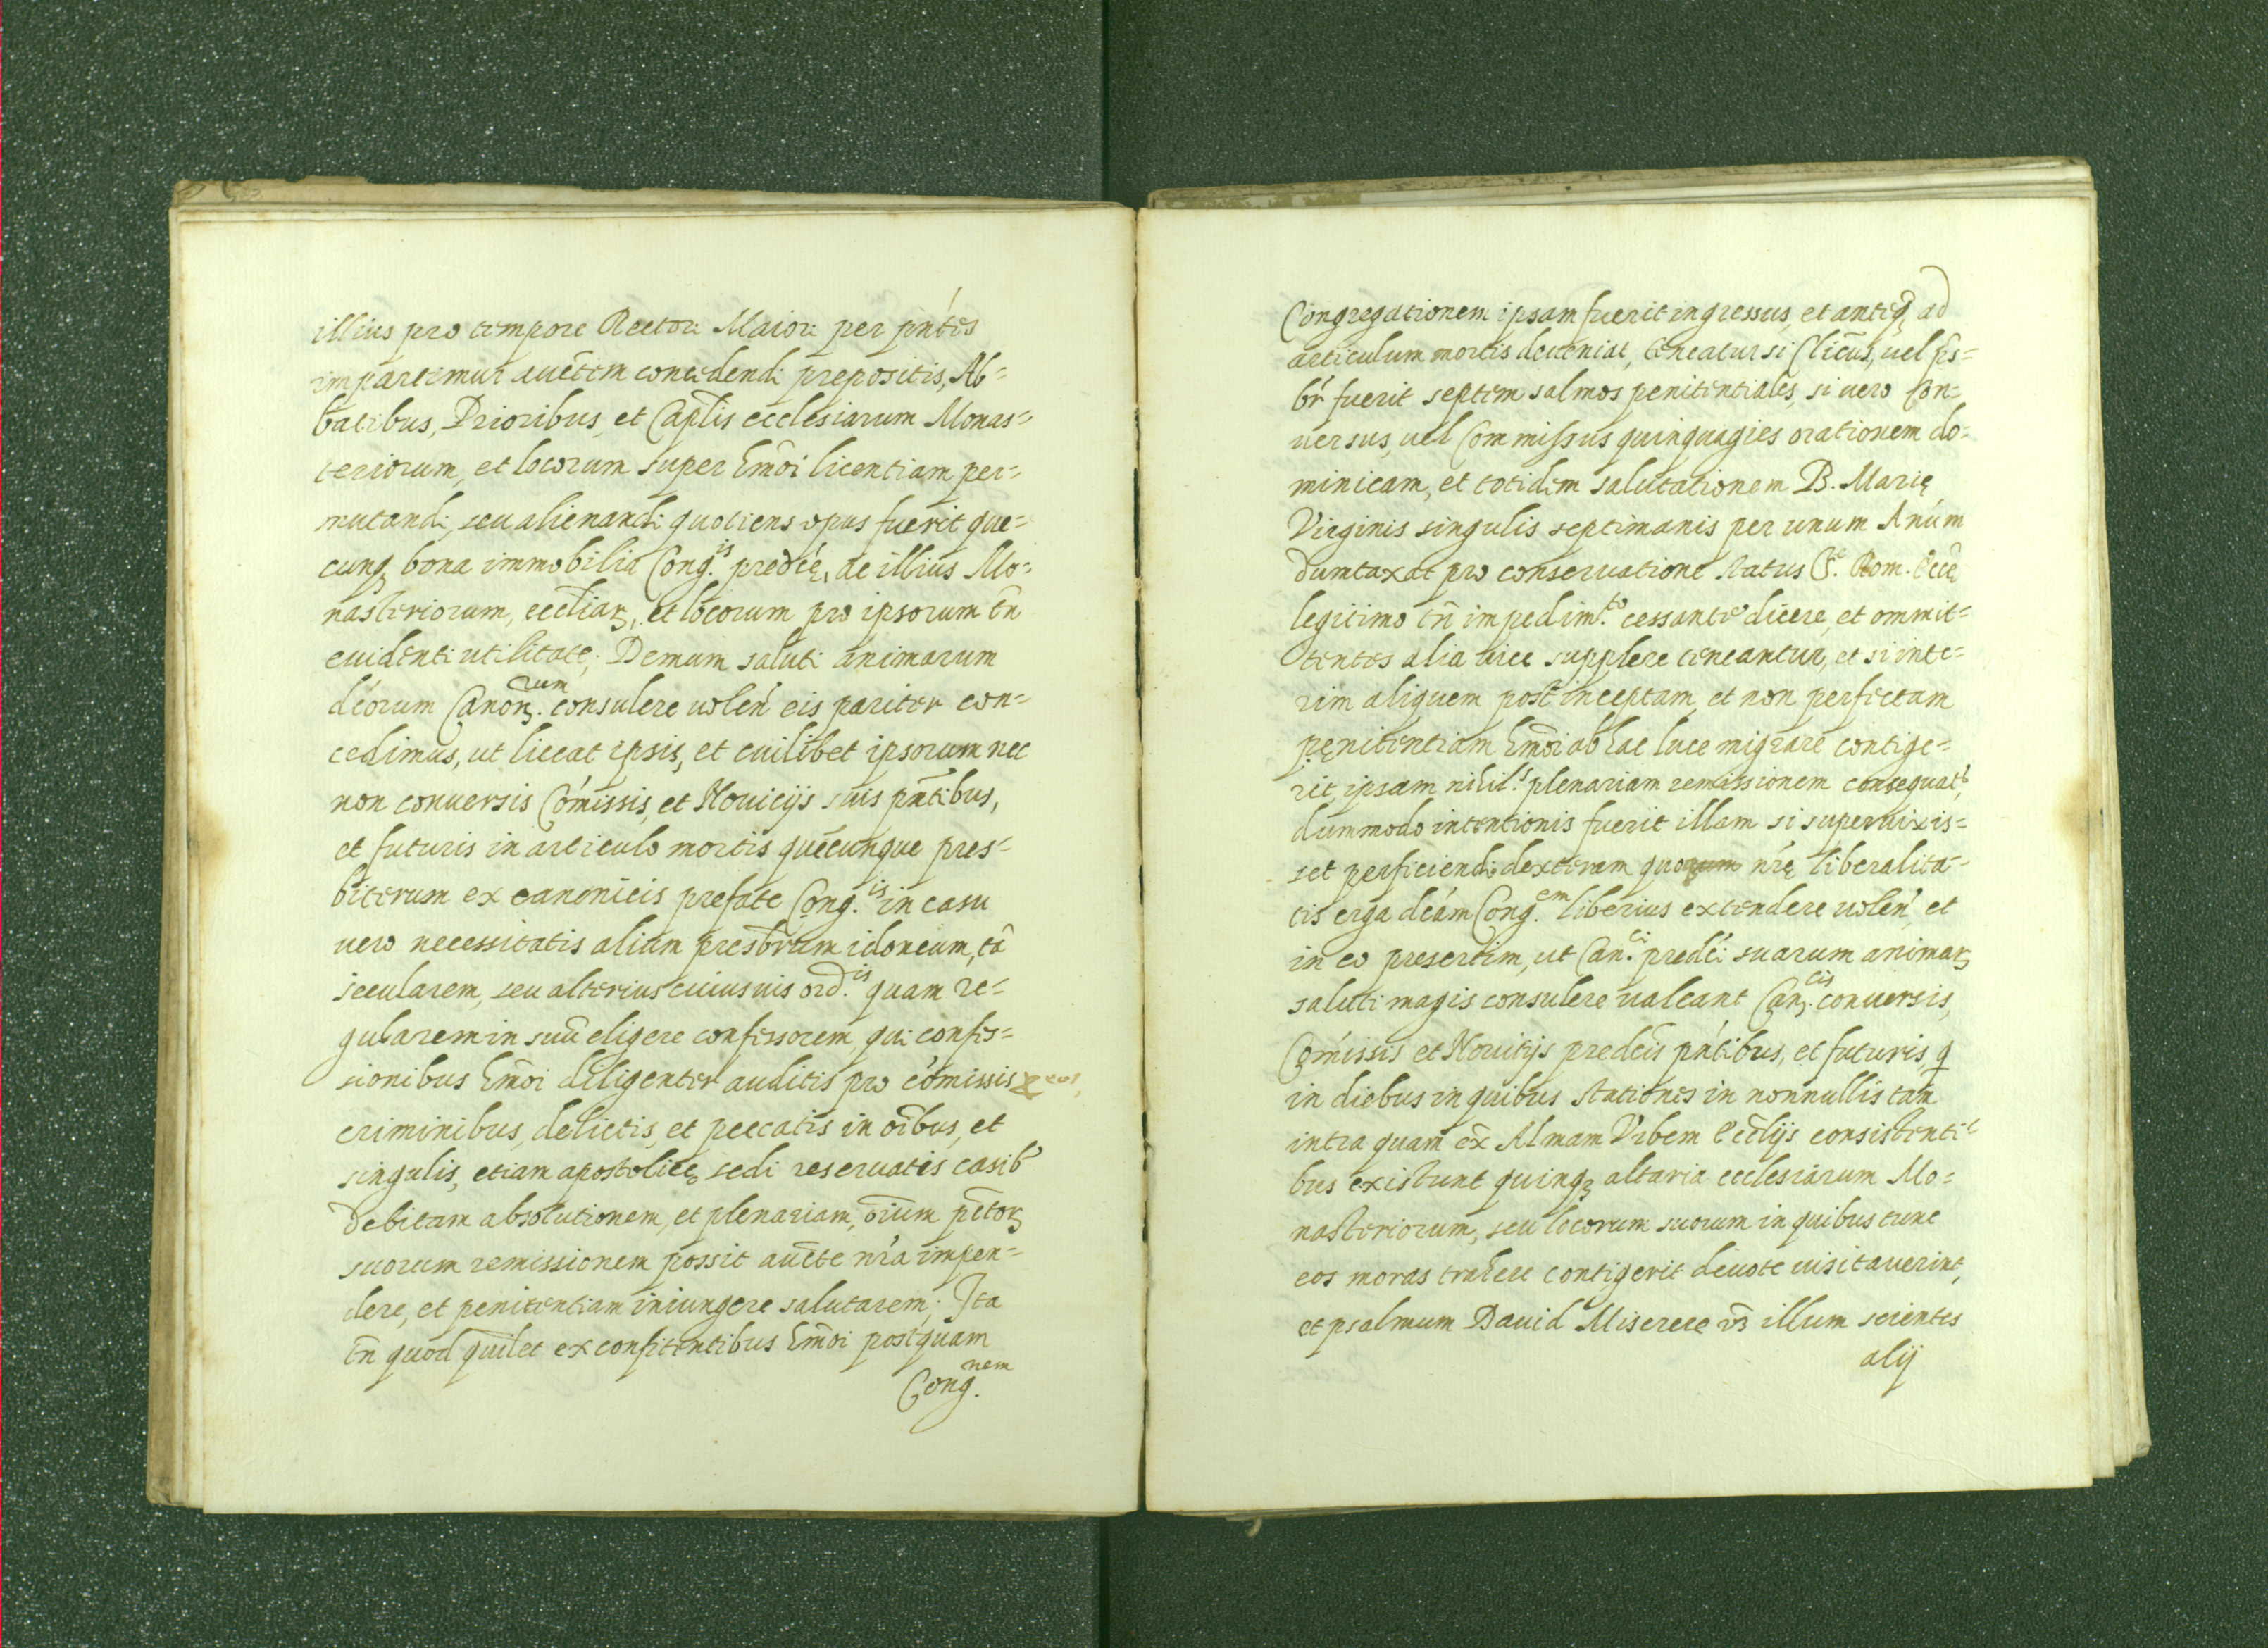 illius pro tempore Rectori Maiori per pńtes
impartimur auc̃tem concedendi prepositis, Ab=
batibus, Prioribus, et Cap̃lis ecclesiarum Monas=
teriorum, et locorum super hm̃oi licentiam per=
mutandi, seu alienandi quotiens opus fuerit que=
cunq₃ bona immobilia Cong.is predc̃ę, ac illius Mo=
nasteriorum, eccl̃iaꝝ, et locorum pro ipsorum tñ
euidenti utilitate; Demum saluti animarum
dc̃orum Canoꝝ.rum consulere uolen̄ eis pariter con=
cedimus, ut liceat ipsis, et cuilibet ipsorum nec
non conuersis Cõmissis, et Nouicijs suis pñtibus,
et futuris in articulo mortis quẽcunque pres=
biterum ex canonicis prefate Cong.is in casu
uero necessitatis alium presb̃rum idoneum, tã
secularem, seu alterius cuiusuis ord.is quam re=
gularem in suũ eligere confessorem, qui confes=
sionibus hm̃oi diligenter auditis pro cõmissis eos,
criminibus, delictis, et peccatis in õibus, et
singulis, etiam apostolicę sedi reseruatis casib'
debitam absolutionem, et plenariam, õium pc̃toꝝ
suorum remissionem possit auc̃te nr̃a impen=
dere, et penitentiam iniungere salutarem; Ita
tñ quod quil̃et ex confitentibus hm̃oi postquam
Cong.nem
Congregationem ipsam fuerit ingressus, et anteq̃ ad
articulum mortis deueniat, teneatur si Cl̃icus, uel p̃s=
br̃ fuerit septem salmos penitentiales, si uero Con=
uersus, uel Commissus quinquagies orationem do=
minicam, et totidem salutationem B. Marię
Virginis singulis septimanis per unum Anũm
dumtaxat pro conseruatione status S.e Rom. Ecc̃ę
legitimo tñ impedim.to cessante dicere, et ommit=
tentes alia uice supplere teneantur, et si inte=
rim aliquem post inceptam et non perfectam
pęnitentiam hm̃oi ab hac luce migrare contige=
rit, ipsam nihil.s plenariam remissionem consequat',
dummodo intentionis fuerit illam si superuixis=
set perficiendi dexteram quoqum nr̃ę liberalita=
tis erga dc̃am Cong.em liberius extendere uolen̄, et
in eo presertim, ut Can.ci predc̃i suarum animaꝝ
saluti magis consulere ualeant Can.cis conuersis,
Cõmissis et Nouitijs predc̃is pñtibus, et futuris, q̃
in diebus in quibus stationes in nonnullis tam
intra quam ex̃ Almam Vrbem Eccl̃ijs consistenti=
bus existunt quinq₃ altaria ecclesiarum Mo=
nasteriorum, seu locorum suorum in quibus tunc
eos moras trahere contigerit deuote uisitauerint,
et psalmum Dauid Miserere u₃ illum scientes
alij